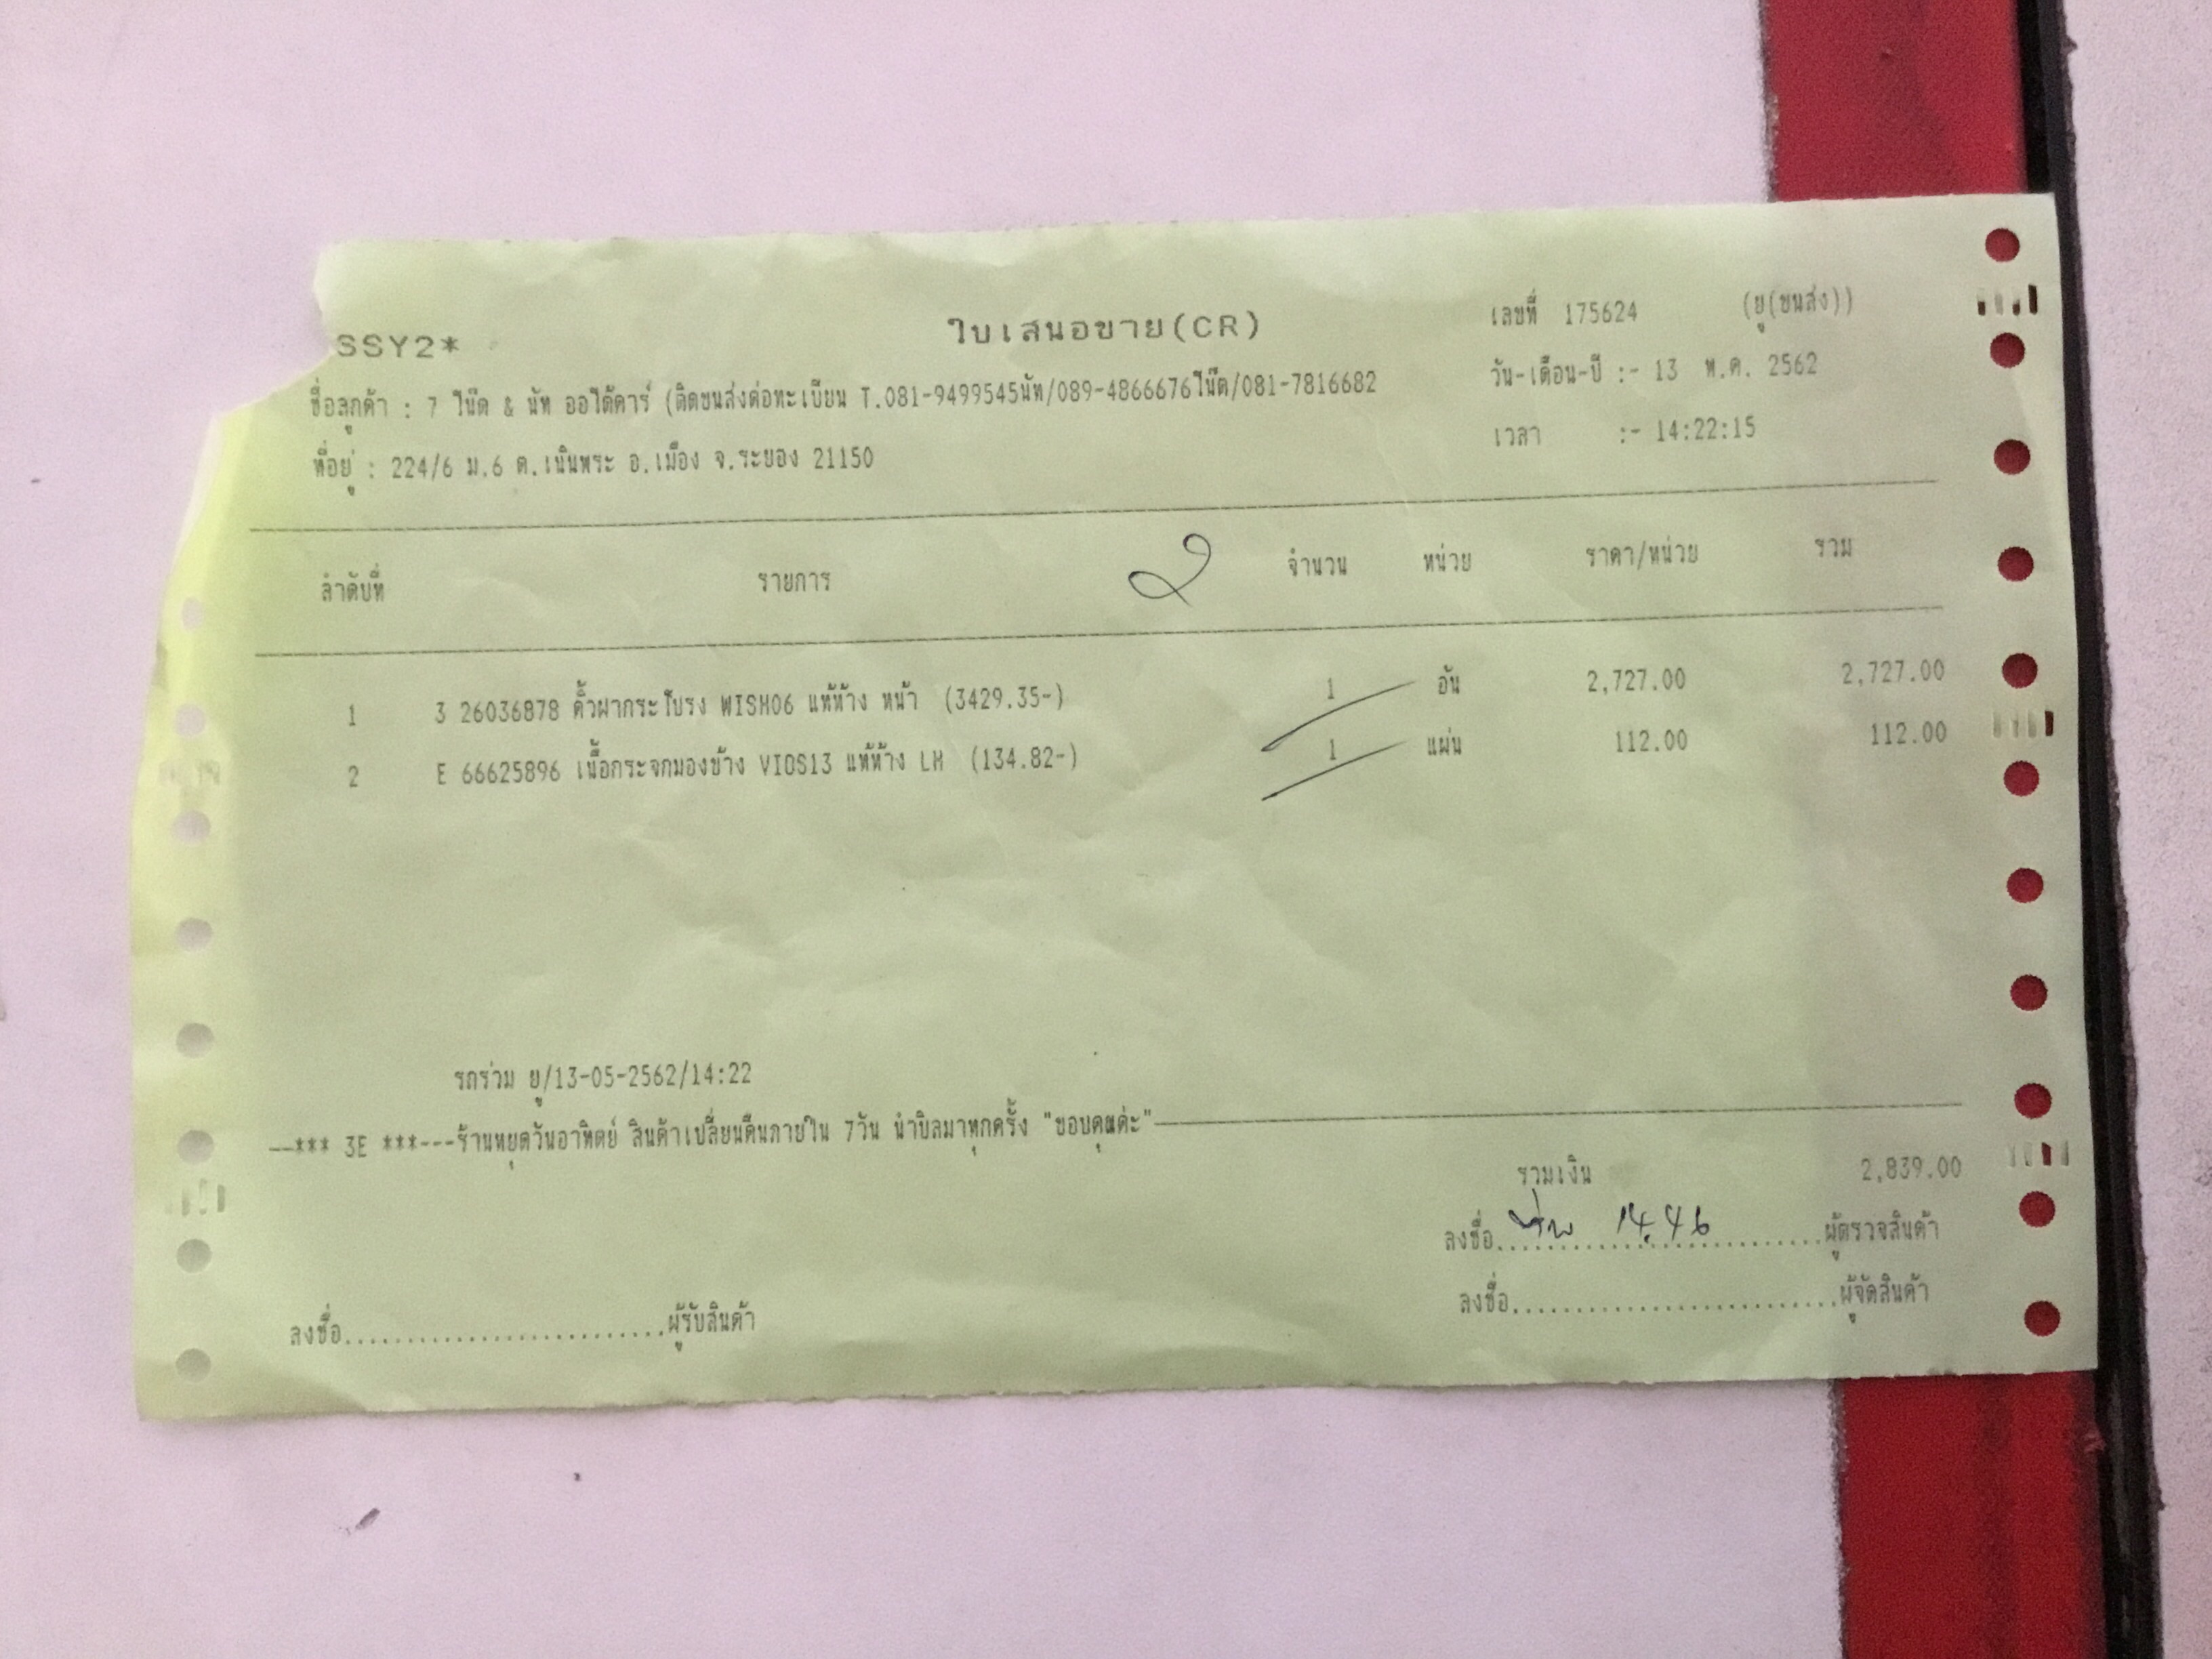 SSY2*
ใบเสนอขาย(CR)
เลขที่ 175624 (ยู(ขนส่ง))
ชื่อลูกค้า : 7 โน๊ต & นัท ออโต้คาร์ (ติดขนส่งต่อทะเบียน T.081-9499545นัท/089-4866676โน๊ต/081-7816682
วัน-เดือน-ปี :- 13 พ.ค. 2562
ที่อยู่ : 224/6 ม.6 ต.เนินพระ อ.เมือง จ.ระยอง 21150
เวลา :- 14:22:15
ลำดับที่ รายการ จำนวน หน่วย ราคา/หน่วย รวม
1 3 26036878 คิ้วฝากระโปรง WISH06 แท้ห้าง หน้า (3429.35-) 1 อัน 2,727.00 2,727.00
2 E 66625896 เนื้อกระจกมองข้าง VIOS13 แท้ห้าง LH (134.82-) 1 แผ่น 112.00 112.00
รถร่วม ยู/13-05-2562/14:22
--*** 3E ***---ร้านหยุดวันอาทิตย์ สินค้าเปลี่ยนคืนภายใน 7วัน นำบิลมาทุกครั้ง "ขอบคุณค่ะ"
รวมเงิน 2,839.00
ลงชื่อ 14.46 ผู้ตรวจสินค้า
ลงชื่อ..........................ผู้จัดสินค้า
ลงชื่อ..........................ผู้รับสินค้า